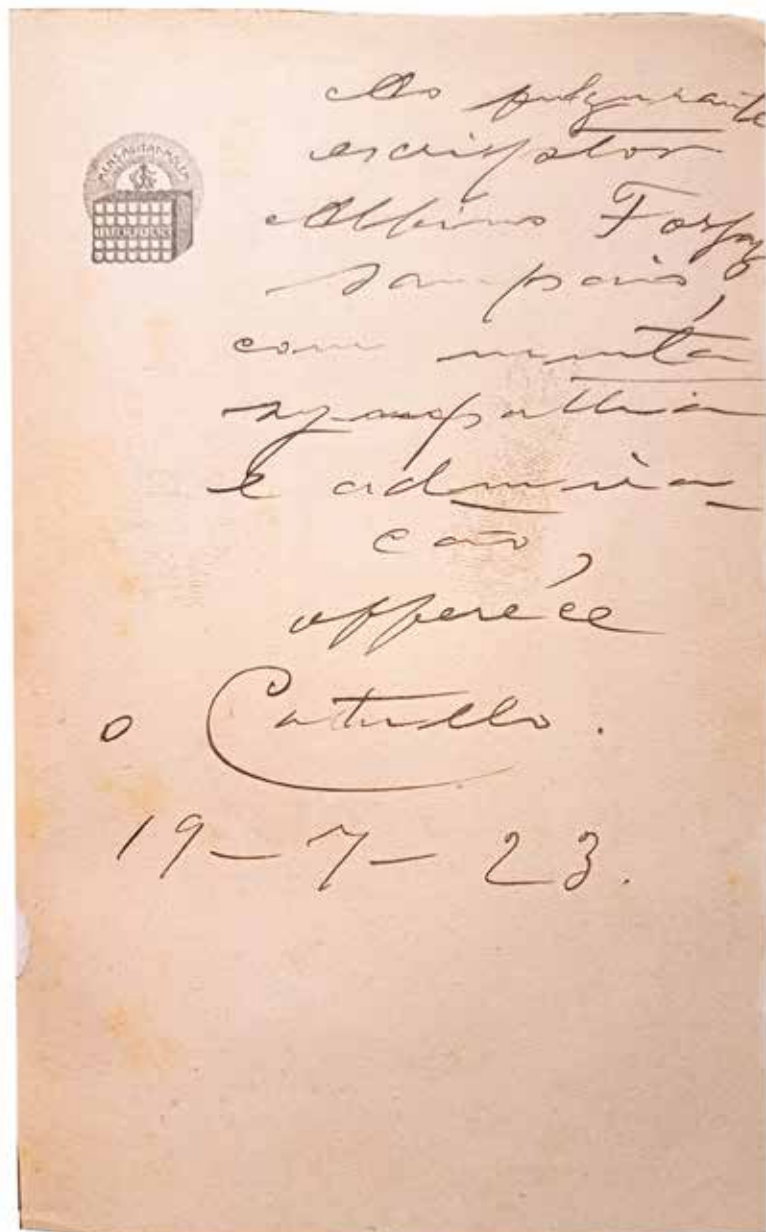 MENS AGITAT MOLEM
Ao fulgurante
escriptor
Albino Forjaz
Sampaio,
com muita
sympathia
e admira_
cão,
offeréce
o Catullo.
19-7-23.